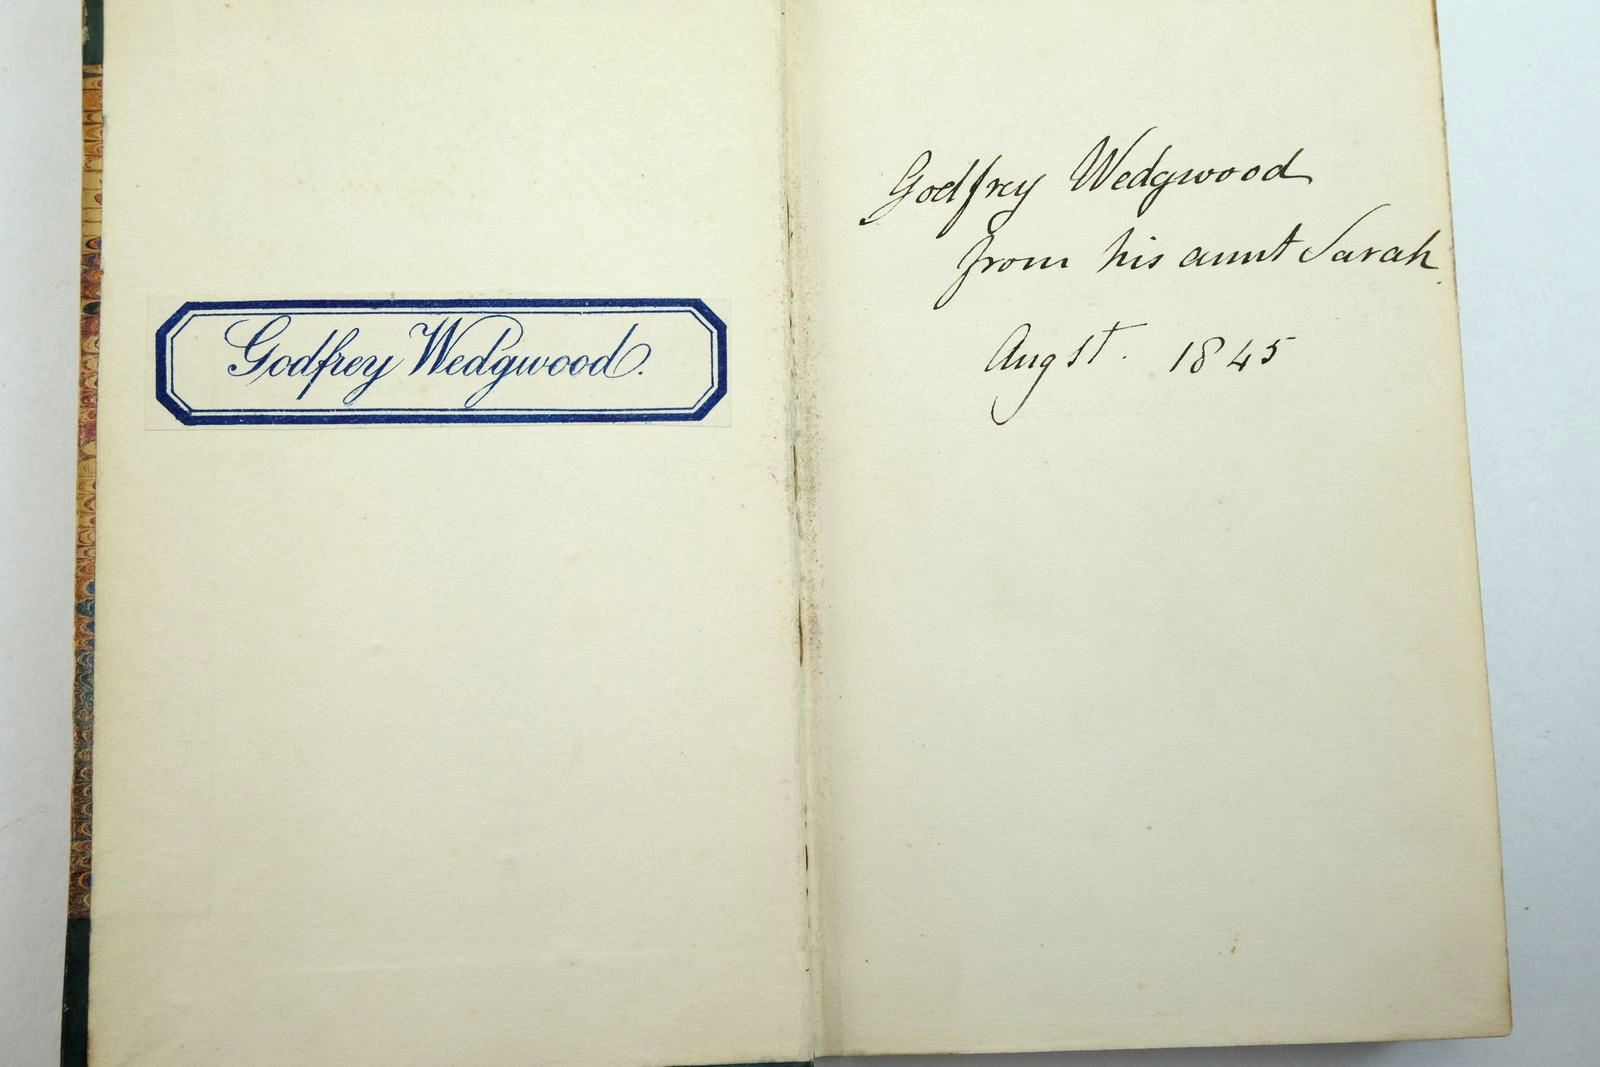 Godfrey Wedgwood.
Godfrey Wedgwood
from his aunt Sarah.
Augst. 1845